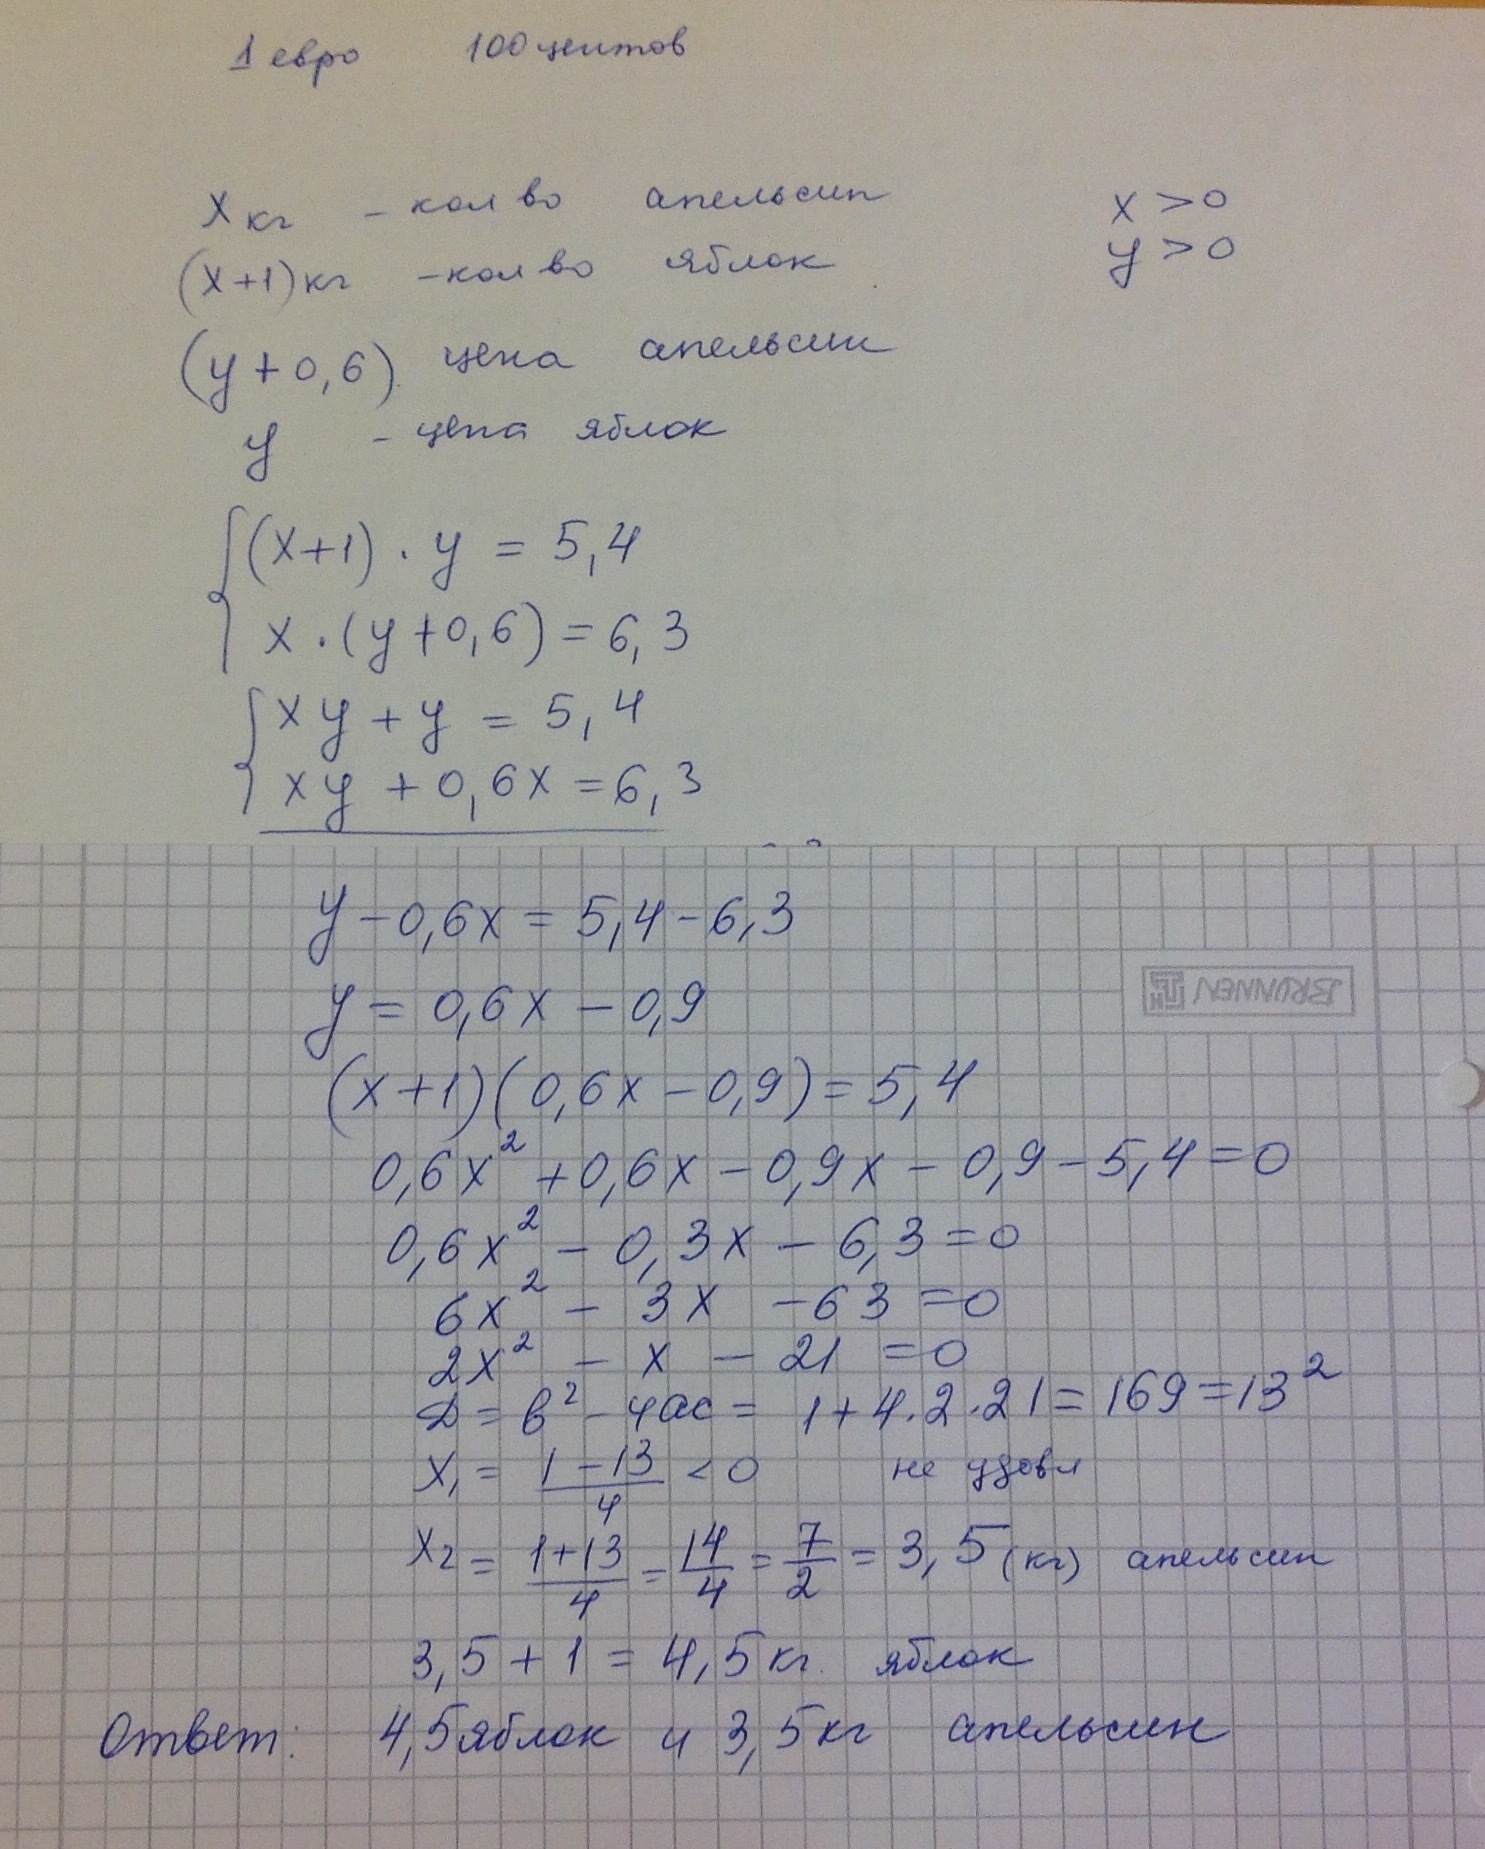 1 евро 100 центов
x кг - кол во апельсин x > 0
(x+1) кг - кол во яблок y > 0
(y + 0,6) цена апельсин
y - цена яблок
(x+1) · y = 5,4
x · (y + 0,6) = 6,3
xy + y = 5,4
xy + 0,6x = 6,3
y - 0,6x = 5,4 - 6,3
BRUNNEN
y = 0,6x - 0,9
(x+1)(0,6x - 0,9) = 5,4
0,6x² + 0,6x - 0,9x - 0,9 - 5,4 = 0
0,6x² - 0,3x - 6,3 = 0
6x² - 3x - 63 = 0
2x² - x - 21 = 0
D = b² - 4ac = 1 + 4·2·21 = 169 = 13²
x₁ = (1-13)/4 < 0 не удовл
x₂ = (1+13)/4 = 14/4 = 7/2 = 3,5 (кг) апельсин
3,5 + 1 = 4,5 кг. яблок
Ответ: 4,5 яблок и 3,5 кг апельсин